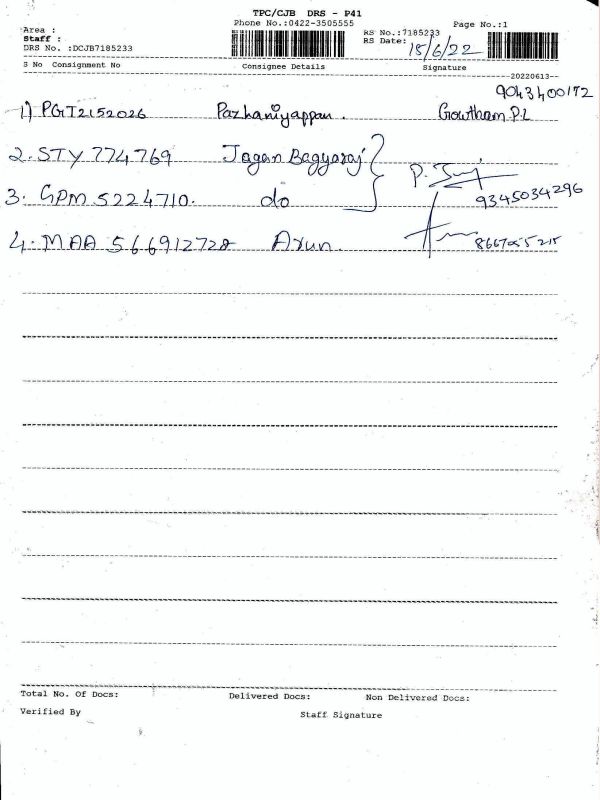 TPC/CJB DRS - P41
Phone No.:0422-3505555
Page No.:1
Area :
Staff :
DRS No. :DCJB7185233
RS No.:7185233
RS Date: 15/6/22
S No Consignment No Consignee Details Signature
20220613
9043400172
1) PGT2152026 Pazhaniyappan. Gowtham P.L
2. STY 774769 Jagan Bagyaraj
3. GPM 5224710. do 9345034296
4. MAA 566912728 Arun.
Total No. Of Docs: Delivered Docs: Non Delivered Docs:
Verified By Staff Signature